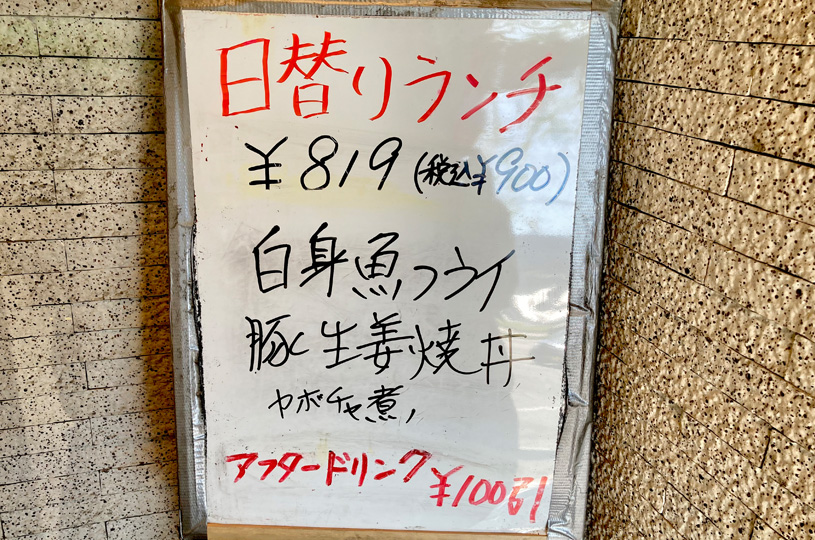 日替りランチ
¥819(税込¥900)
白身魚フライ
豚生姜焼丼
カボチャ煮
アフタードリンク
¥100引